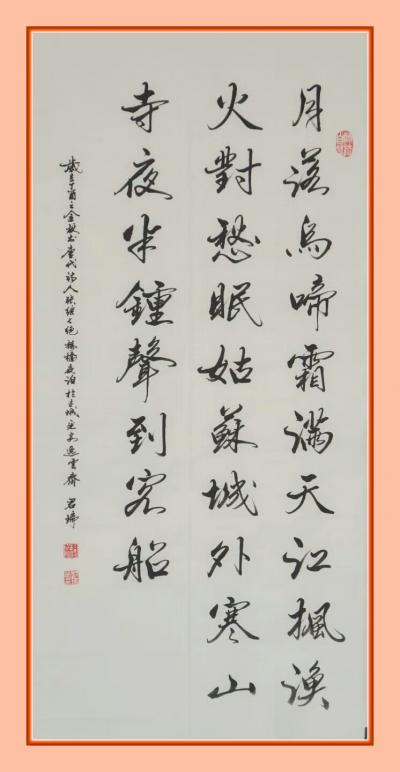 月落烏啼霜滿天江楓漁
火對愁眠姑蘇城外寒山
寺夜半鍾聲到客船
歲在丁酉之金秋书唐代詩人張继七绝楓橋夜泊於京城逸雲齋 君